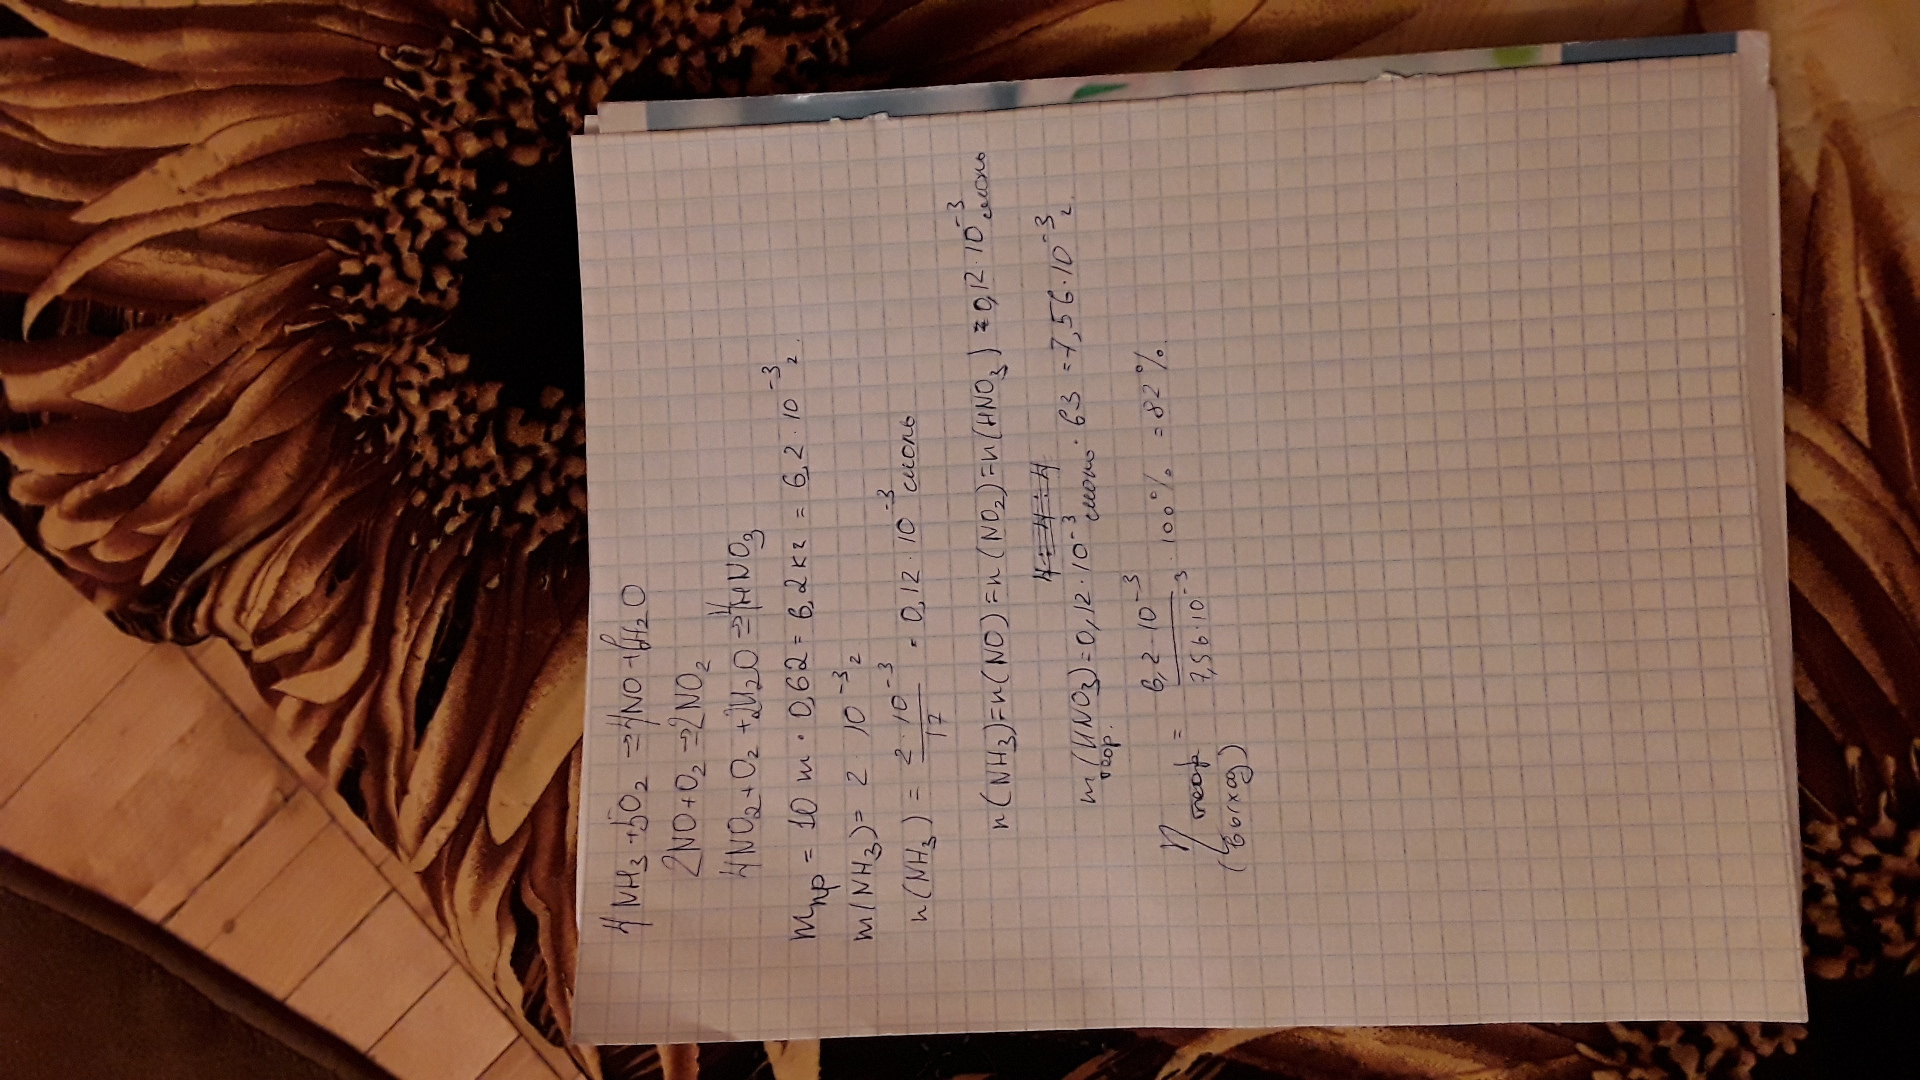 4NH₃ + 5O₂ → 4NO + 6H₂O
2NO + O₂ → 2NO₂
4NO₂ + O₂ + 2H₂O → 4HNO₃
mпр = 10 т · 0,62 = 6,2 кг = 6,2 · 10⁻³ г.
m(NH₃) = 2 · 10⁻³ г
n(NH₃) = 2 · 10⁻³ / 17 = 0,12 · 10⁻³ моль
n(NH₃) = n(NO) = n(NO₂) = n(HNO₃) = 0,12 · 10⁻³ моль
mтеор.(HNO₃) = 0,12 · 10⁻³ моль · 63 = 7,56 · 10⁻³ г.
η теор (выход) = 6,2 · 10⁻³ / 7,56 · 10⁻³ · 100% = 82%.